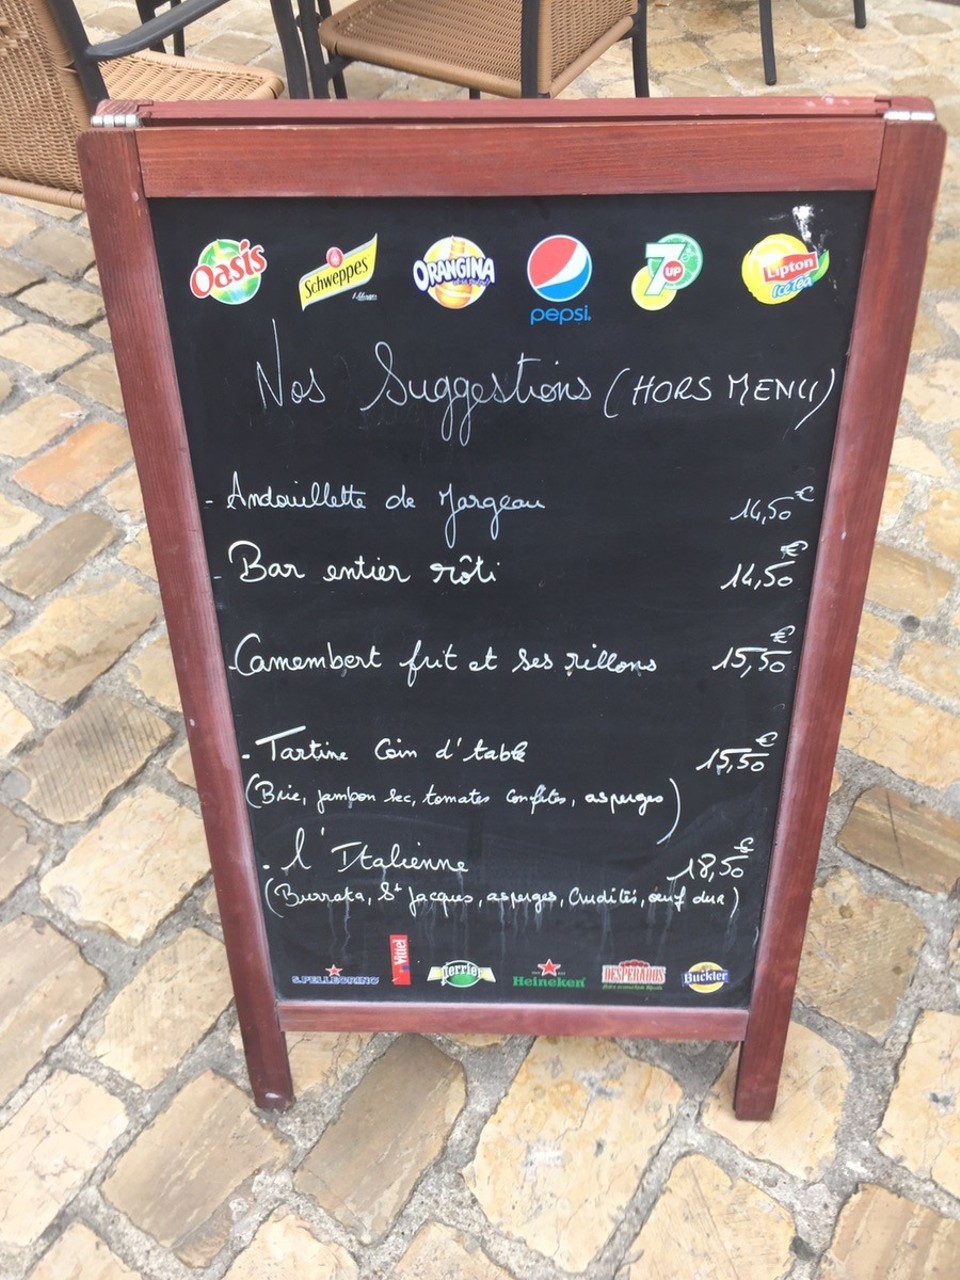 Oasis Schweppes ORANGINA pepsi. 7UP Lipton Ice Tea
Nos Suggestions (HORS MENU)
- Andouillette de Jargeau 14,50€
- Bar entier rôti 14,50€
- Camembert frit et ses rillons 15,50€
- Tartine Coin d'table 15,50€
(Brie, jambon sec, tomates confites, asperges)
- l'Italienne 18,50€
(Burrata, St Jacques, asperges, Crudités, œuf dur)
S.PELLEGRINO Vittel perrier Heineken DESPERADOS Buckler